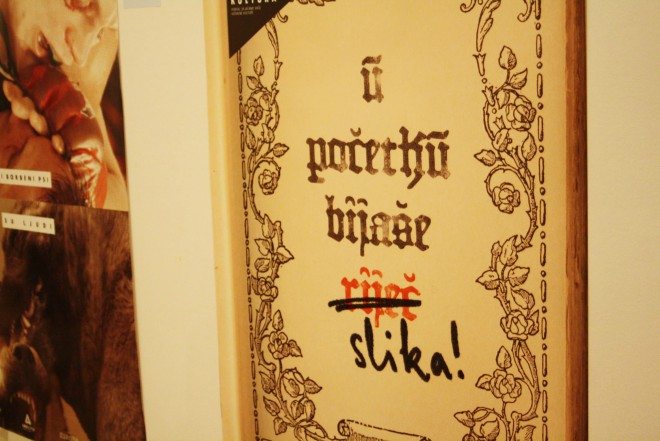 KULTURA
ū
početkū
bijaše
riječ
slika!
I BORBENI PSI
SU LJUDI